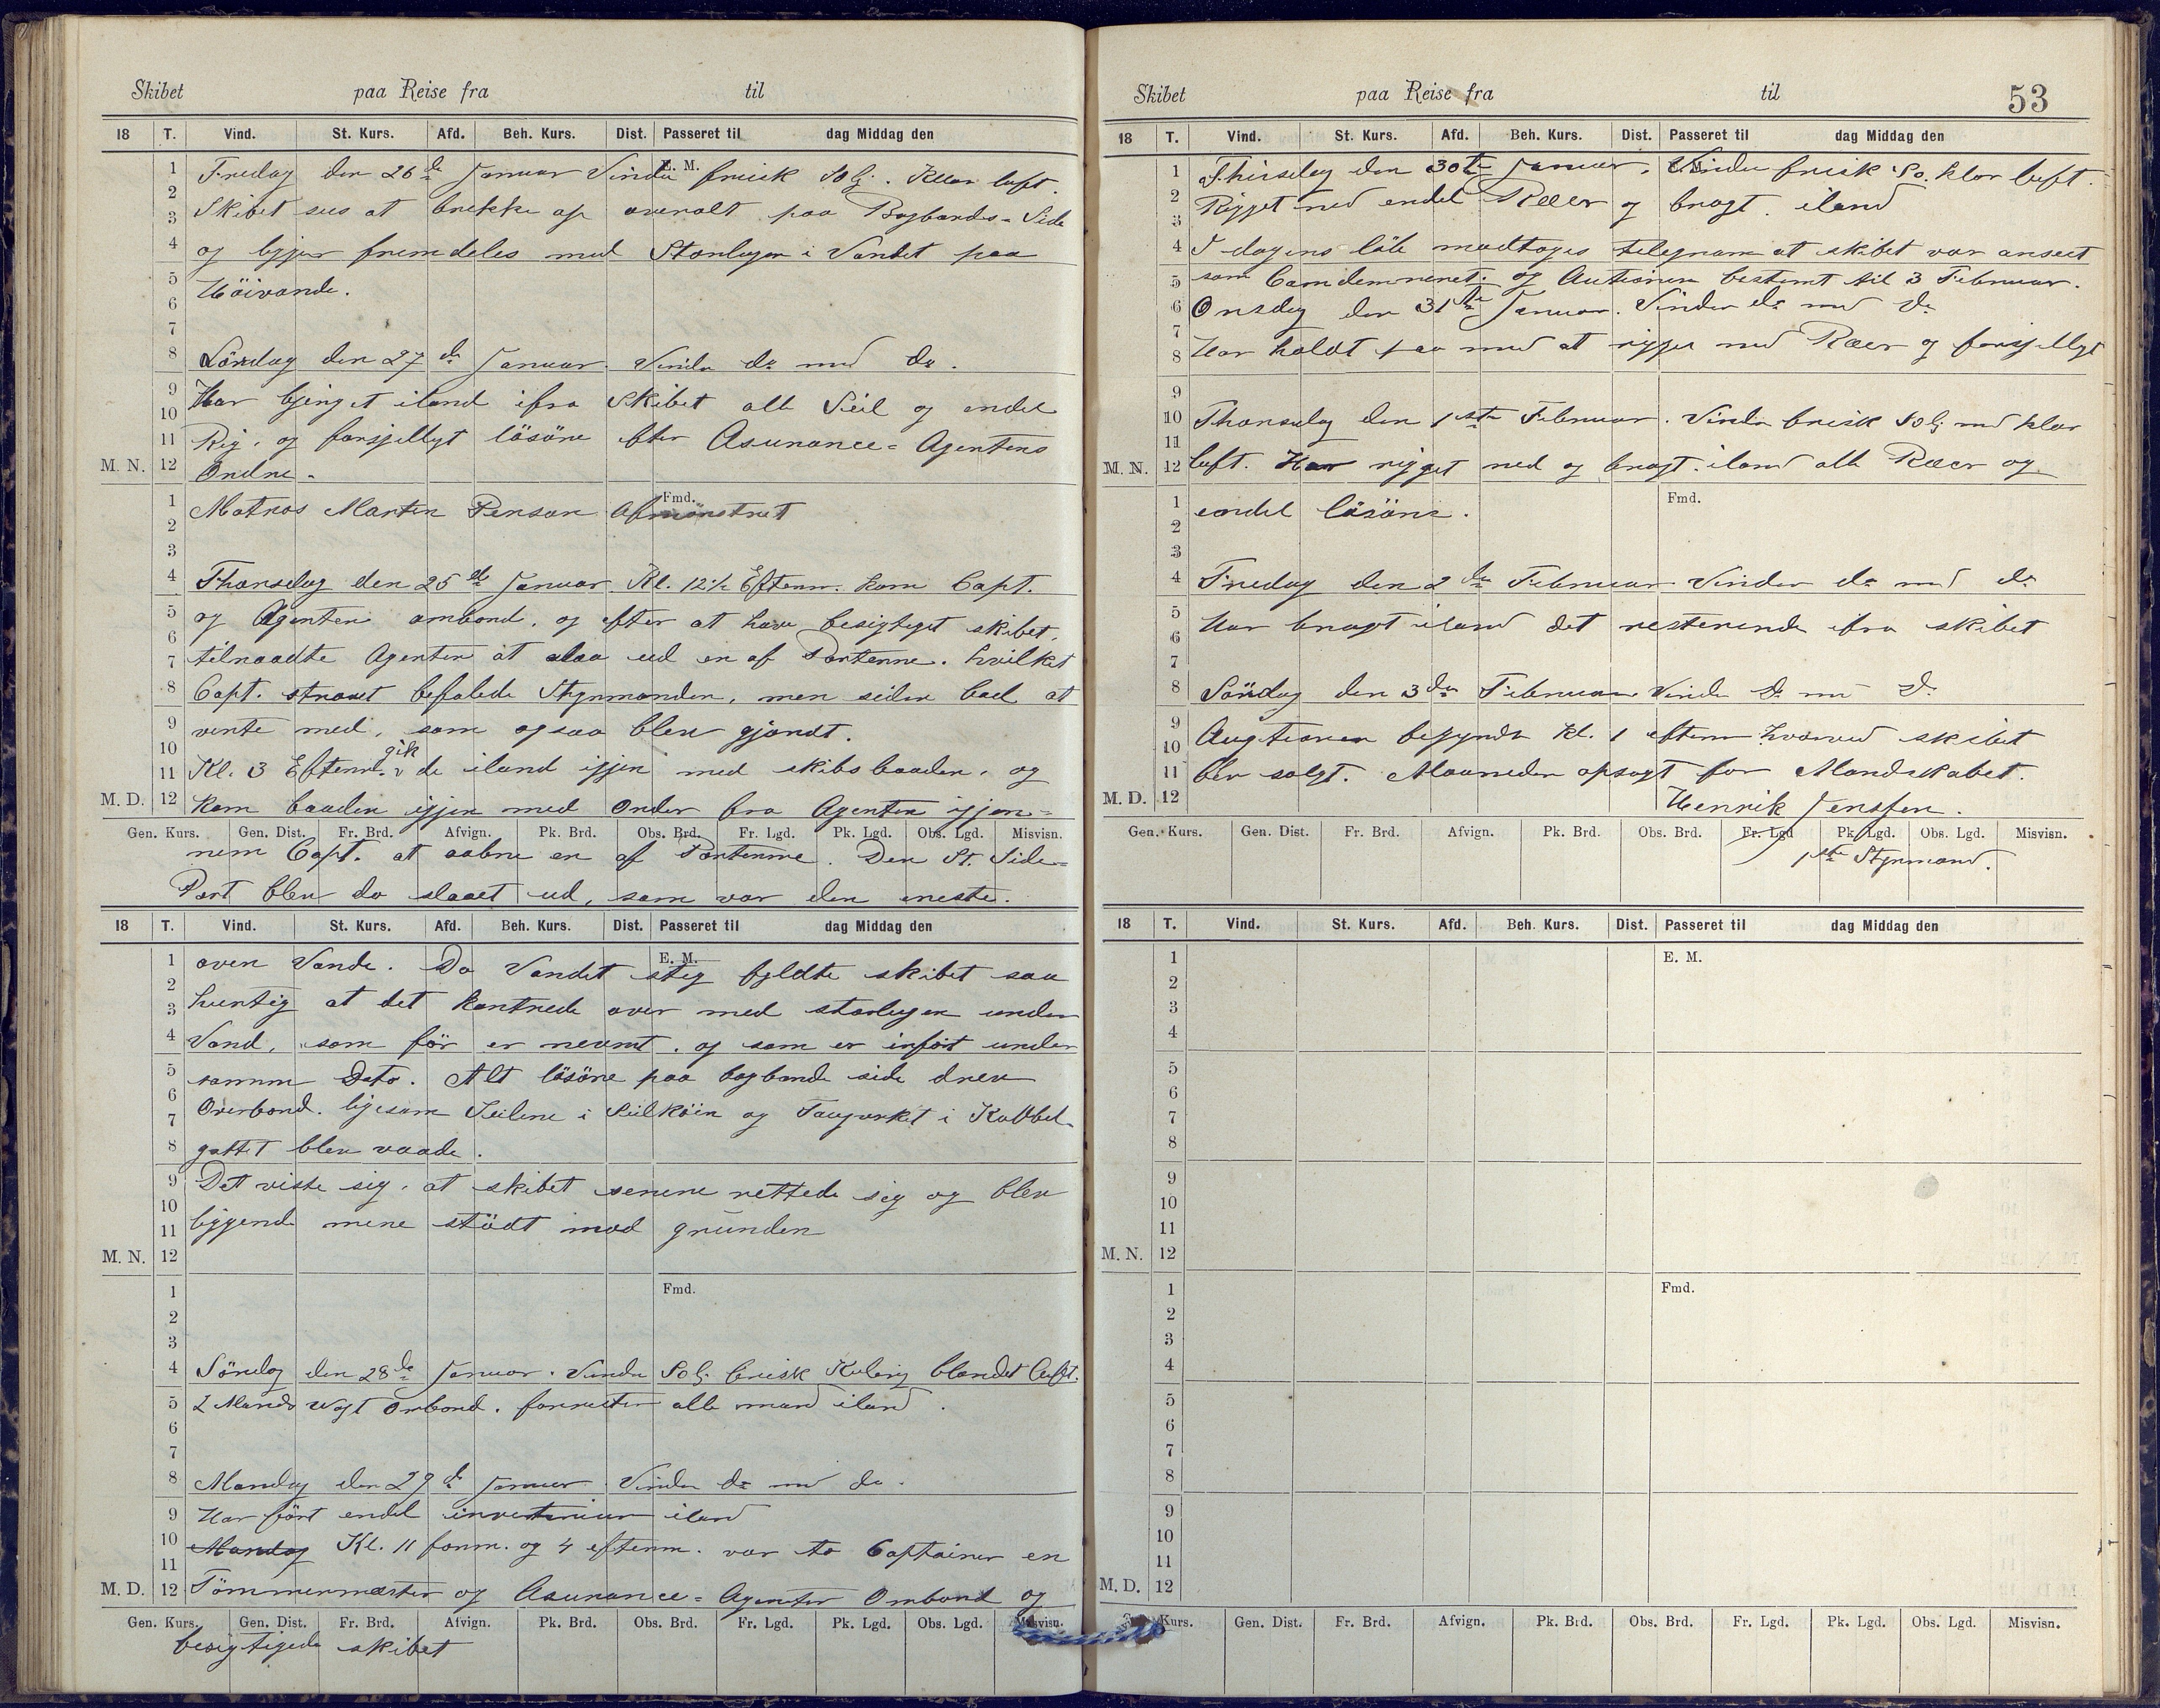 Skibet paa Reise fra til
18 T. Vind. St. Kurs. Afd. Beh. Kurs. Dist. Passeret til dag Middag den
E. M.
Fredag den 26de Januar Vinden frisk SO. Klar luft.
Skibet sees at brekke op overalt paa Bagbords-Side
og ligger fremdeles med Storlugen i Vandet paa
Höivande.
Lördag den 27de Januar. Vinden do med do.
Har bjerget iland ifra Skibet alle Seil og endel
Rig. og forsjelligt lösöre efter Asurance-Agentens
Ordre.
M. N.
Fmd.
Matros Marten Person Afmönstret
Thorsdag den 25de Januar Kl. 12½ Efterm. kom Capt.
og Agenten ombord. og efter at have besigtiget skibet,
tilraadte Agenten at slaa ud en af Portenne. hvilket
Capt. straxt befalede Styrmanden, men siden bad at
vente med, som ogsaa blev gjordt.
Kl. 3 Efterm. gik de iland igjen med skibsbaaden. og
M. D. kom baaden igjen med Order fra Agenten igjen-
Gen. Kurs. Gen. Dist. Fr. Brd. Afvign. Pk. Brd. Obs. Brd. Fr. Lgd. Pk. Lgd. Obs. Lgd. Misvisn.
nem Capt. at aabne en af Portenne. Den St. Side-
Port blev da slaaet ud, som var den eneste
18 T. Vind. St. Kurs. Afd. Beh. Kurs. Dist. Passeret til dag Middag den
E. M.
oven Vande. Da Vandet steg fyldte skibet saa
hurtig at det kantrede over med storlugen under
Vand, som før er nevnt. og som er infört under
samme Dato. Alt lösöre paa bagbords side drev
Overbord. ligesom Seilene i Seilköien og Taugverket i Kabbel-
gattet blev vaade.
Det viste sig, at skibet senere rettede sig og blev
liggende mere stödt mod grunden
M. N.
Fmd.
Söndag den 28de Januar. Vinden SO. frisk Kuling blandet luft.
2 Mands vagt Ombord. forresten alle mand iland.
Mandag den 29de Januar Vinden do med do.
Har fört endel inventarium iland
Mandag Kl. 11 form. og 4 efterm. var to Captainer en
M. D. Tömmermæster og Asurance-Agenten Ombord og
Gen. Kurs. Gen. Dist. Fr. Brd. Afvign. Pk. Brd. Obs. Brd. Fr. Lgd. Pk. Lgd. Obs. Lgd. Misvisn.
besigtigede skibet
Skibet paa Reise fra til 53
18 T. Vind. St. Kurs. Afd. Beh. Kurs. Dist. Passeret til dag Middag den
Thirsdag den 30te Januar. Vinden frisk So. klar luft.
Rigget ned endel Ræer og bragt iland
I dagens löb modtoges telegram at skibet var anseet
som Comdemneret. og Auctionen bestemt til 3 Februar.
Onsdag den 31te Januar. Vinden do med do
Har holdt paa med at rigge ned Ræer og forsjelligt
Thorsdag den 1ste Februar. Vinden frisk SO. med klar
M. N. luft. Har rigget ned og bragt iland alle Ræer og
Fmd.
endel lösöre.
Fredag den 2den Februar Vinden do med do
Har bragt iland det resterende ifra skibet
Lördag den 3den Februar Vinden do med do
Augtionen begyndte Kl. 1 efterm hvorved skibet
blev solgt. Maaneden opsagt for Mandskabet.
M. D. Henrik Jenssen.
Gen. Kurs. Gen. Dist. Fr. Brd. Afvign. Pk. Brd. Obs. Brd. Fr. Lgd Pk. Lgd. Obs. Lgd. Misvisn.
1ste Styrmand.
18 T. Vind. St. Kurs. Afd. Beh. Kurs. Dist. Passeret til dag Middag den
E. M.
M. N.
Fmd.
M. D.
Kurs. Gen. Dist. Fr. Brd. Afvign. Pk. Brd. Obs. Brd. Fr. Lgd. Pk. Lgd. Obs. Lgd. Misvisn.